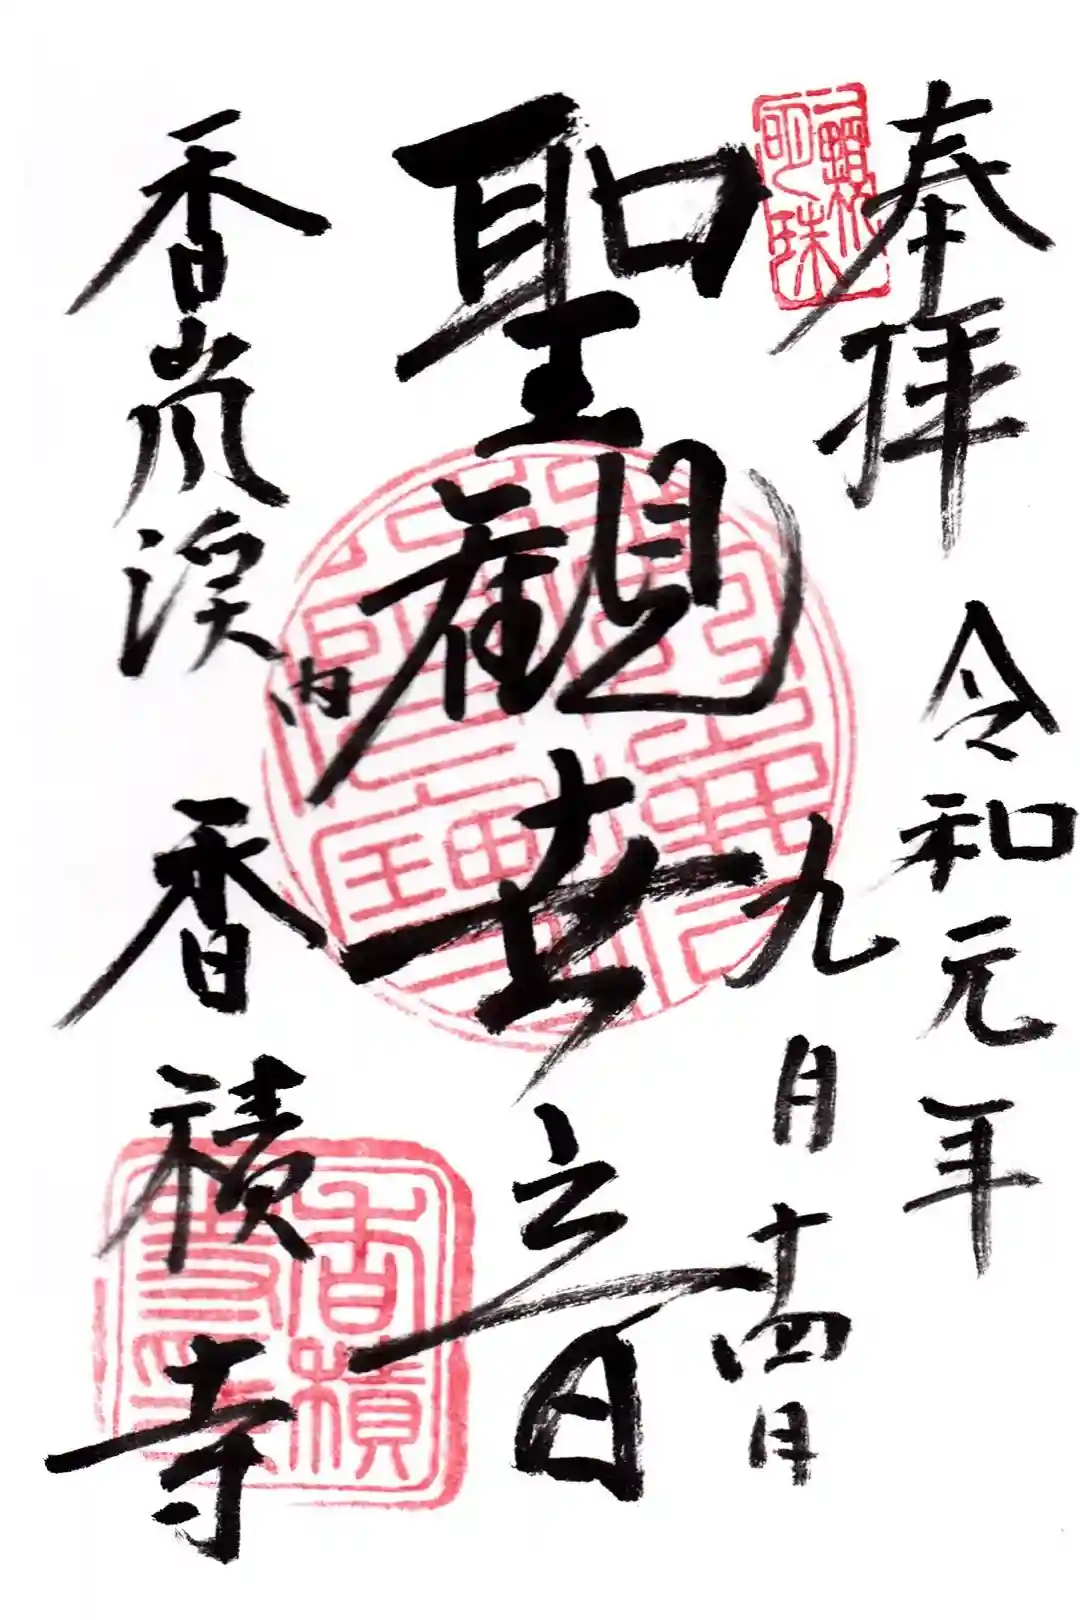 奉拝
令和元年
九月十四日
聖觀世音
香嵐渓内
香積寺
一顆明珠